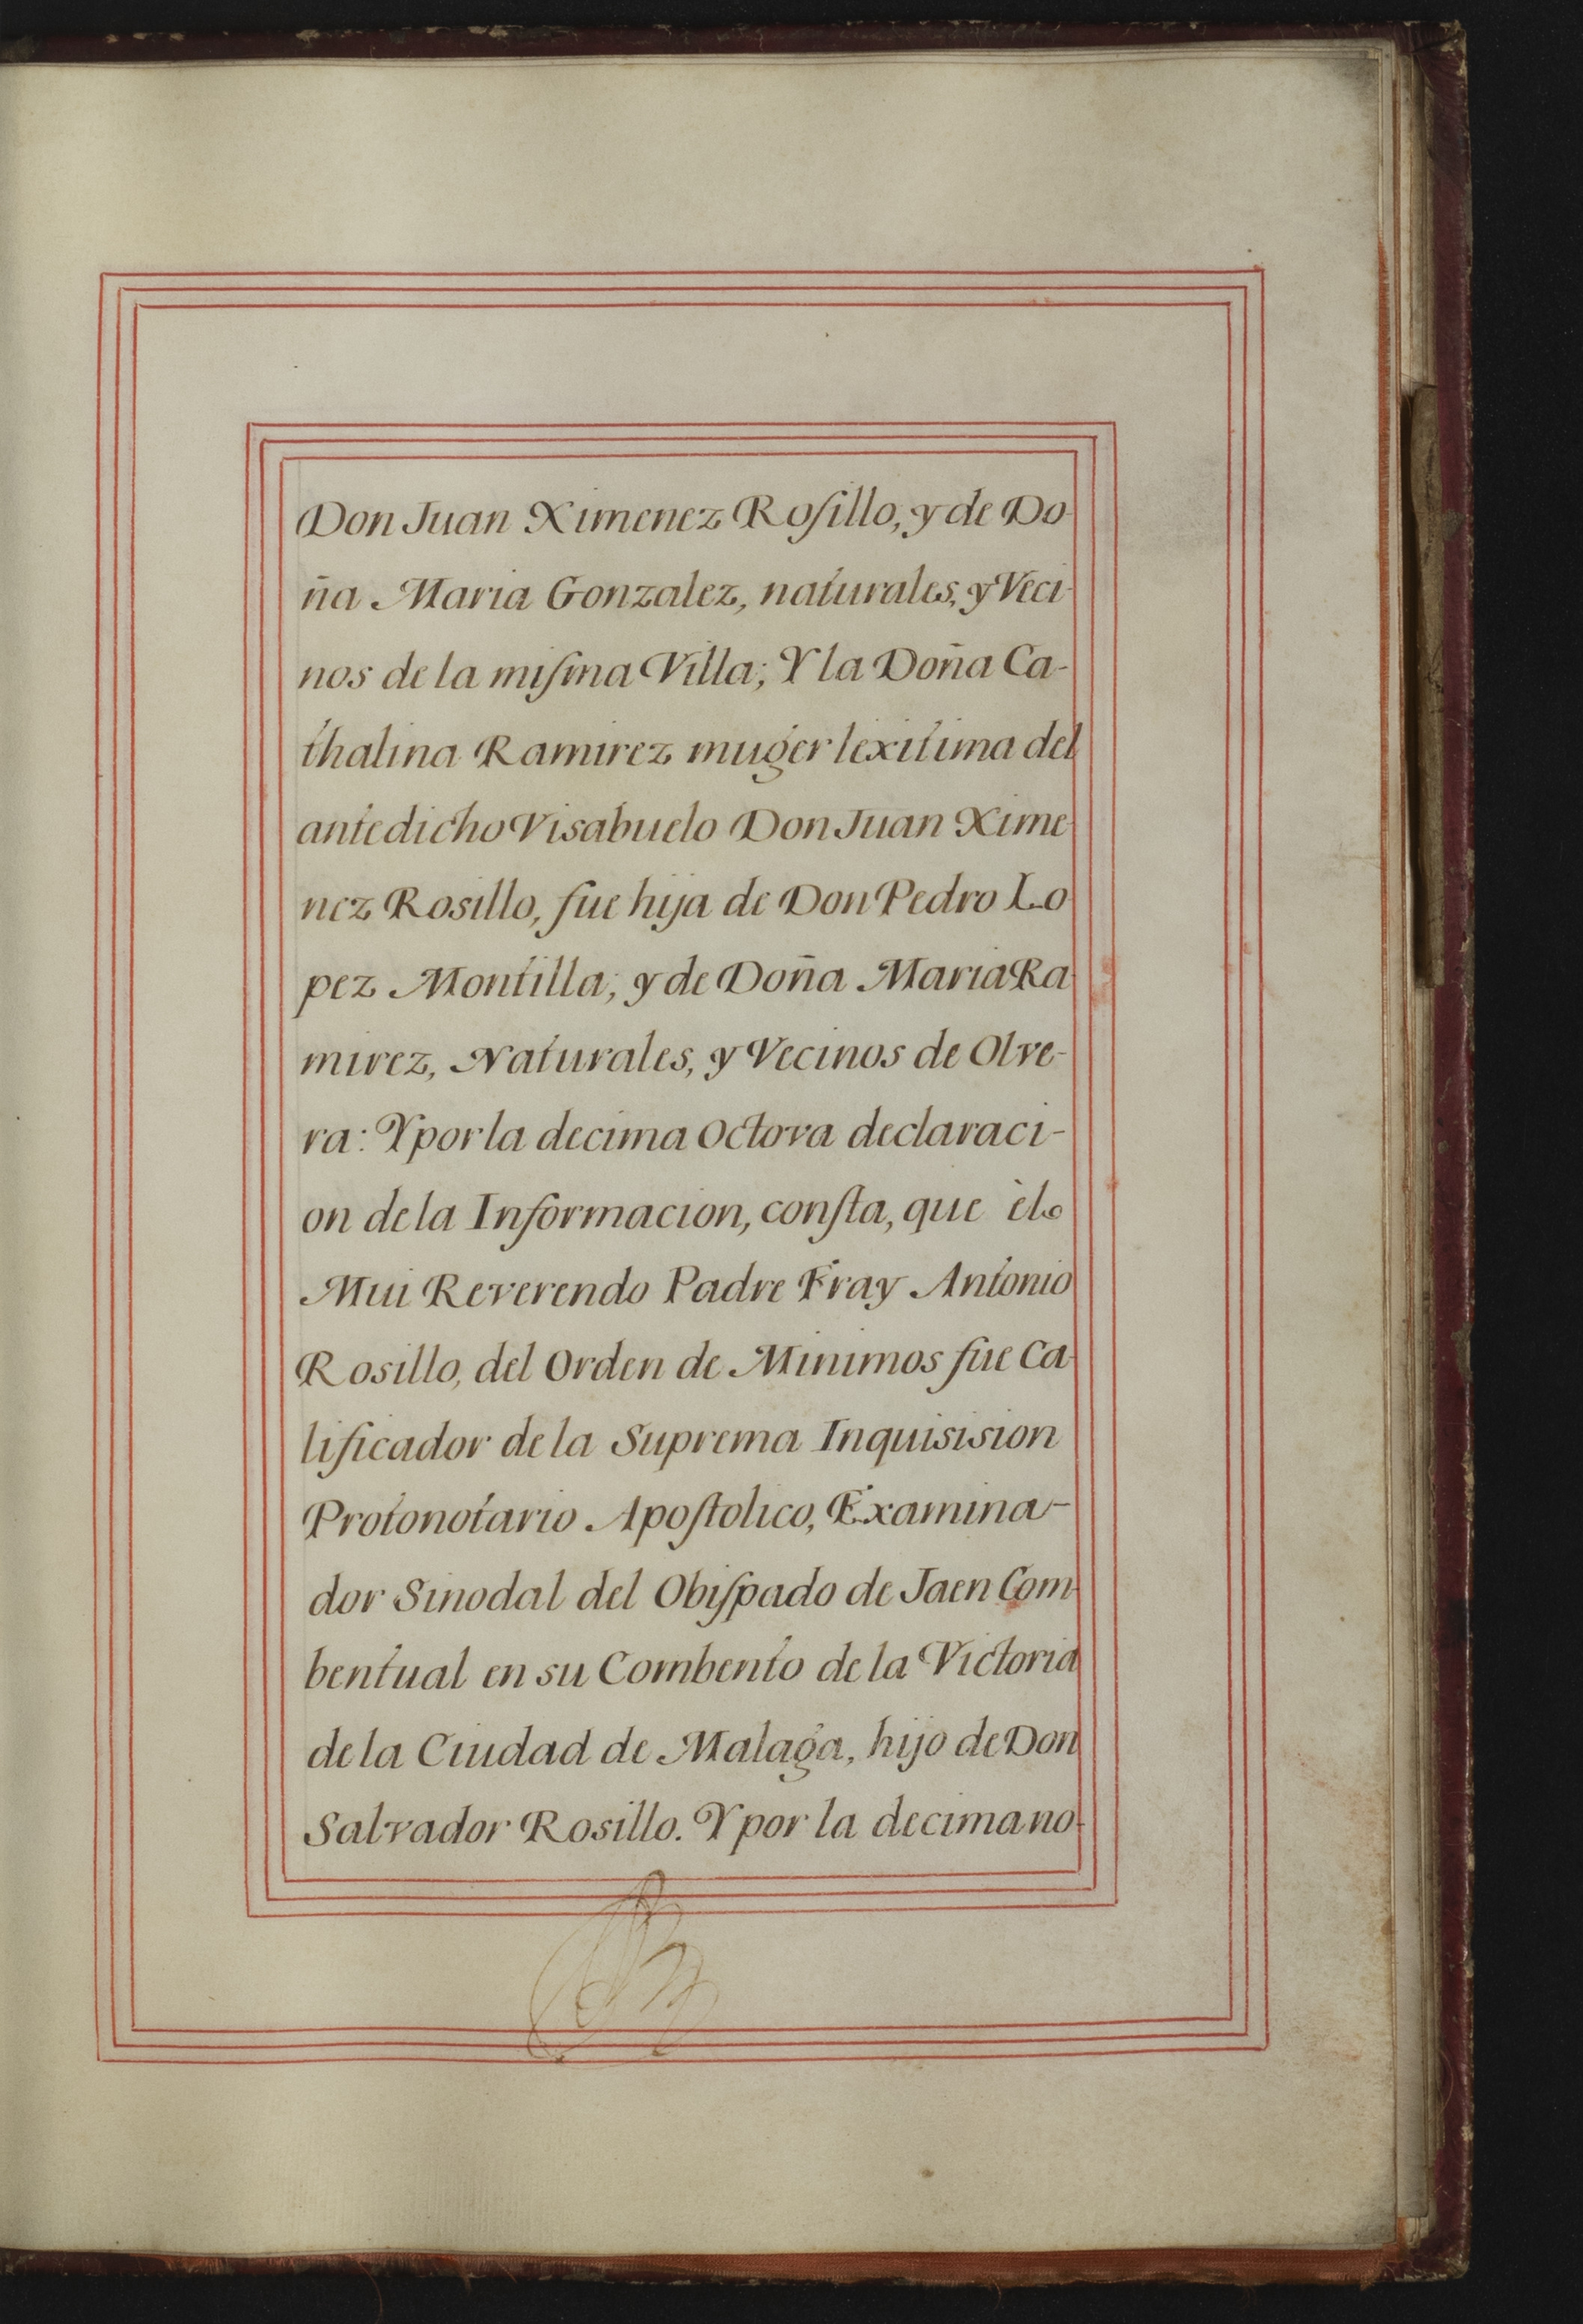 Don Juan Ximenez Roſillo, y de Do
ña Maria Gonzalez, naturales, y Veci
nos de la miſma Villa; Y la Doña Ca-
thalina Ramirez muger lexitima del
antedicho Visabuelo Don Juan Xime
nez Rosillo, fue hija de Don Pedro Lo
pez Montilla; y de Doña Maria Ra
mirez, Naturales, y Vecinos de Olve-
ra: Y por la decima octova declaraci-
on de la Informacion, conſta, que èl
Mui Reverendo Padre Fray Antonio
Rosillo, del Orden de Minimos fue Ca
lificador de la Suprema Inquisision
Protonotario Apoſtolico, Examina-
dor Sinodal del Obiſpado de Jaen Com-
bentual en su Combento de la Victoria
de la Ciudad de Malaga, hijo de Don
Salvador Rosillo. Y por la decima no-